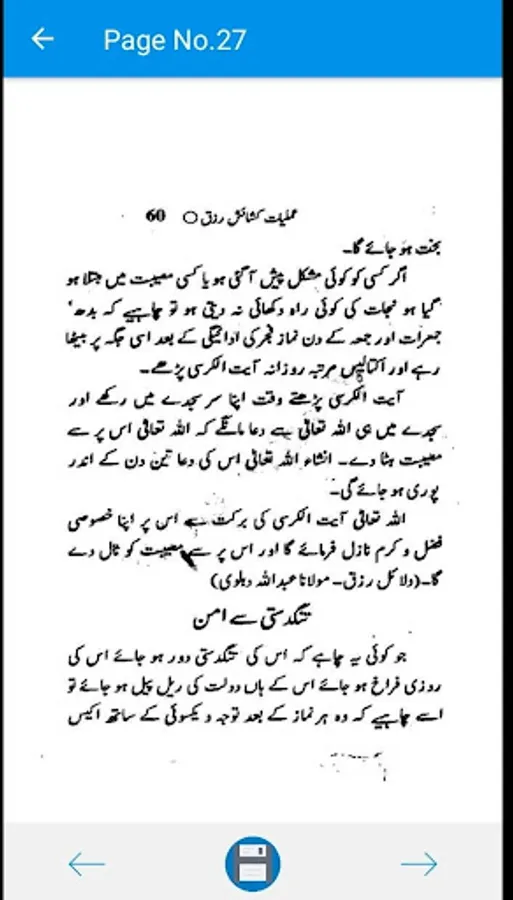 Page No.27
عملیات کشائش رزق ○ 60
بخت ہو جائے گا۔
اگر کسی کو کوئی مشکل پیش آ گئی ہو یا کسی مصیبت میں مبتلا ہو
گیا ہو نجات کی کوئی راہ دکھائی نہ دیتی ہو تو چاہیے کہ بدھ'
جمعرات اور جمعہ کے دن نماز فجر کی ادائیگی کے بعد اسی جگہ پر بیٹھا
رہے اور اکتالیس مرتبہ روزانہ آیت الکرسی پڑھے۔
آیت الکرسی پڑھتے وقت اپنا سر سجدے میں رکھے اور
سجدے میں ہی اللہ تعالیٰ سے دعا مانگے کہ اللہ تعالیٰ اس پر سے
مصیبت ہٹا دے۔ انشاء اللہ تعالیٰ اس کی دعا تین دن کے اندر
پوری ہو جائے گی۔
اللہ تعالیٰ آیت الکرسی کی برکت سے اس پر اپنا خصوصی
فضل و کرم نازل فرمائے گا اور اس پر سے مصیبت کو ٹال دے
گا۔ (دلائل رزق۔ مولانا عبداللہ دہلوی)
تنگدستی سے امن
جو کوئی یہ چاہے کہ اس کی تنگدستی دور ہو جائے اس کی
روزی فراخ ہو جائے اس کے ہاں دولت کی ریل پیل ہو جائے تو
اسے چاہیے کہ وہ ہر نماز کے بعد توجہ و یکسوئی کے ساتھ اکیس